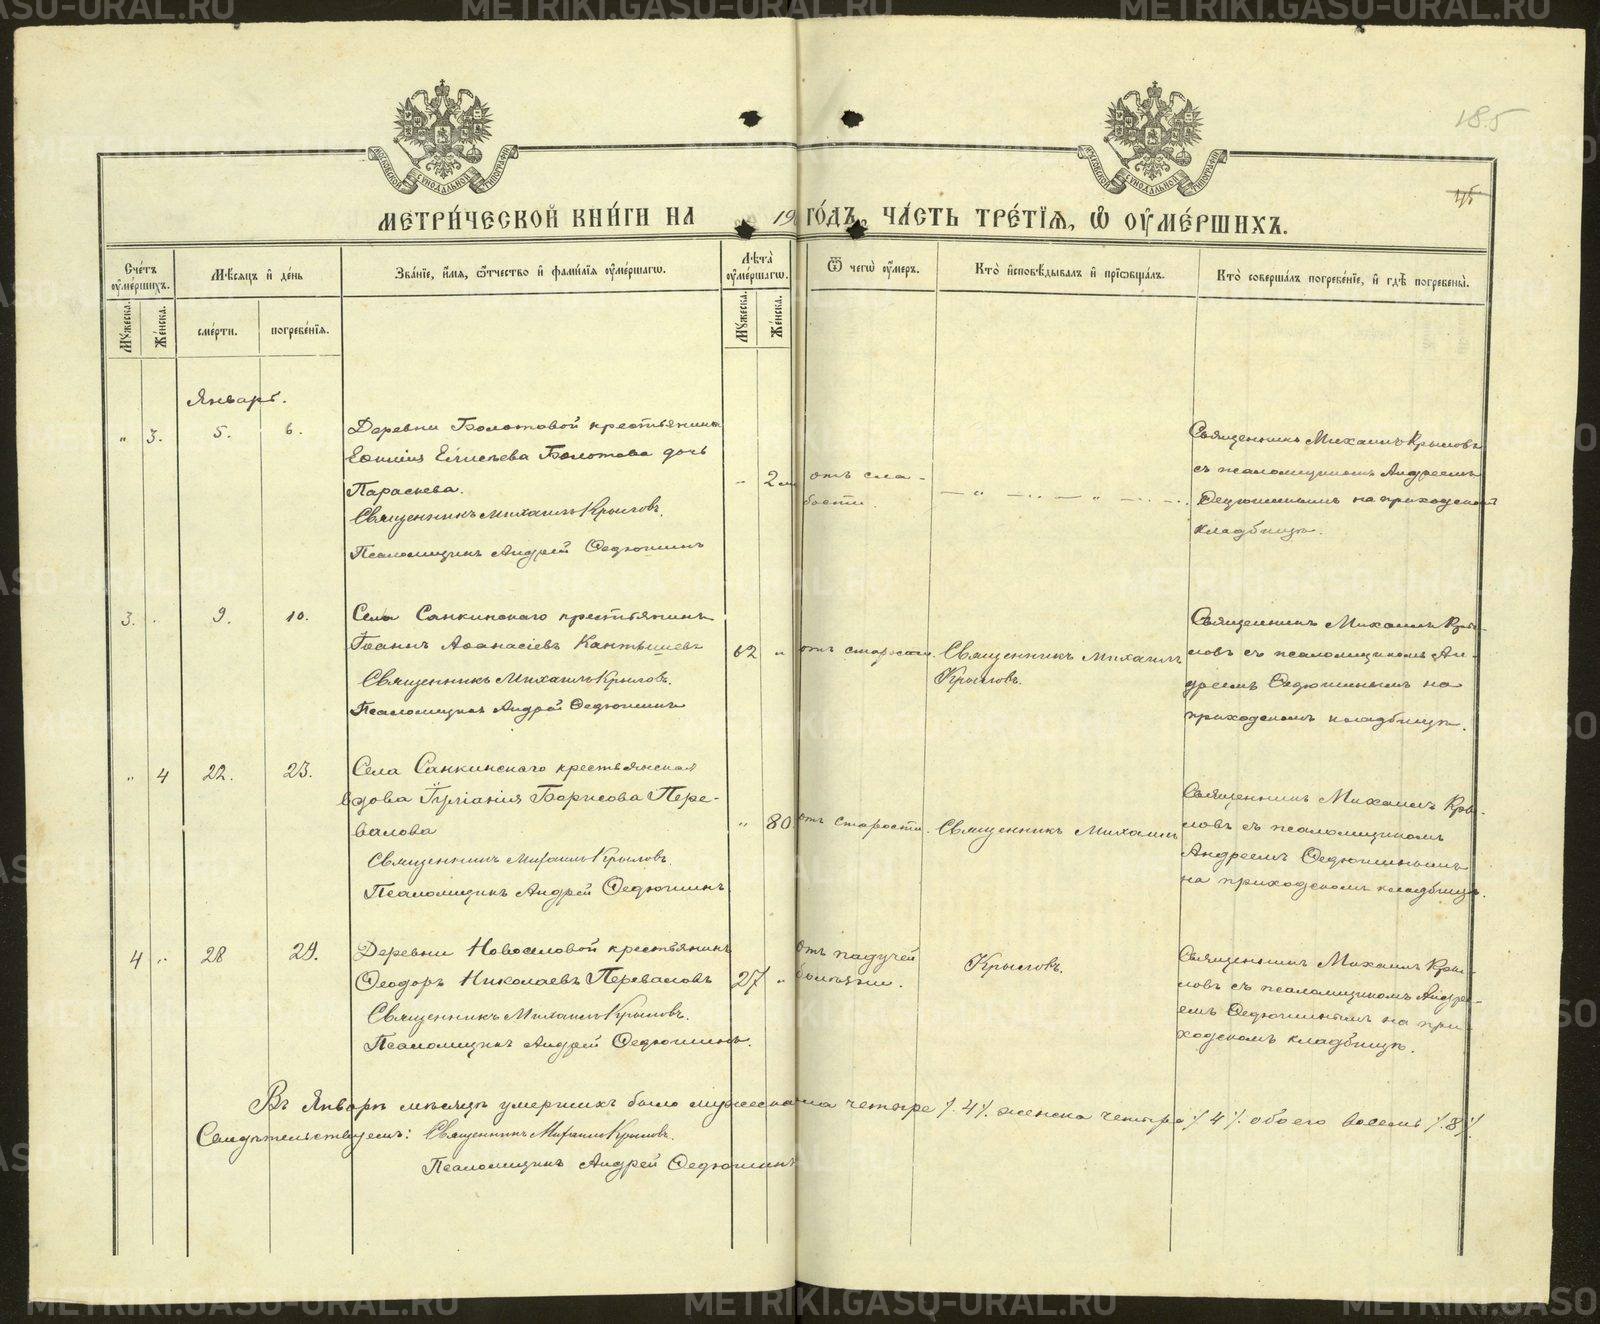 185
45
МОСКОВСКОЙ СѴНОДАЛЬНОЙ ТИПОГРАФІИ
МОСКОВСКОЙ СѴНОДАЛЬНОЙ ТИПОГРАФІИ
МЕТРИ́ЧЕСКОЙ КНИ́ГИ НА 19 ГО́ДЪ, ЧА́СТЬ ТРЕ́ТІЯ, Ѡ ОУ҆МЕ́РШИХЪ.
Сче́тъ оу҆ме́ршихъ.
Мѣ́сяцъ и҆ де́нь
Зва́нїе, и҆́мя, ѻ҆́тчество и҆ фами́лїя оу҆ме́ршагѡ.
Лѣ́та оу҆ме́ршагѡ.
Ѿ чегѡ̀ оу҆́меръ.
Кто̀ и҆сповѣ́дывалъ и҆ прїѡбща́лъ.
Кто̀ соверша́лъ погребе́нїе, и҆ гдѣ̀ погребены̀.
Му́жеска.
Же́нска.
сме́рти.
погребе́нїя.
Му́жеска.
Же́нска.
Январь.
„ 3. 5. 6.
Деревни Болотовой крестьянина
Болотова дочь
Параскева.
Священникъ Михаилъ Крыловъ.
Псаломщикъ Андрей Ѳедюшинъ
„ 2
отъ сла-
бости.
— „ — — „ —
Священникъ Михаилъ Крыловъ
съ псаломщикомъ Андреемъ
Ѳедюшинымъ на приходском
кладбищѣ.
3. „ 9. 10.
Села Санкинскаго крестьянинъ
Іоаннъ Аѳанасіевъ Кантышевъ
Священникъ Михаилъ Крыловъ.
Псаломщикъ Андрей Ѳедюшинъ
62 „
отъ старости.
Священникъ Михаилъ
Крыловъ.
Священникъ Михаилъ Кры-
ловъ съ псаломщикомъ Ан-
дреемъ Ѳедюшинымъ на
приходскомъ кладбищѣ.
„ 4 22. 23.
Села Санкинскаго крестьянская
вдова Іуліанія Борисова Пере-
валова
Священникъ Михаилъ Крыловъ.
Псаломщикъ Андрей Ѳедюшинъ
„ 80
отъ старости.
Священникъ Михаилъ
Священникъ Михаилъ Кры-
ловъ съ псаломщикомъ
Андреемъ Ѳедюшинымъ
на приходскомъ кладбищѣ.
4 „ 28 29.
Деревни Новоселовой крестьянинъ
Ѳеодоръ Николаевъ Переваловъ
Священникъ Михаилъ Крыловъ.
Псаломщикъ Андрей Ѳедюшинъ.
27 „
отъ падучей
болѣзни.
Крыловъ.
Священникъ Михаилъ Кры-
ловъ съ псаломщикомъ Андре-
емъ Ѳедюшинымъ на при-
ходскомъ кладбищѣ.
Въ Январѣ мѣсяцѣ умершихъ было мужеска пола четыре /.4/. женска четыре /.4/. обоего восемь /.8/.
Свидѣтельствуемъ: Священникъ Михаилъ Крыловъ.
Псаломщикъ Андрей Ѳедюшинъ
METRIKI.GASO-URAL.RU